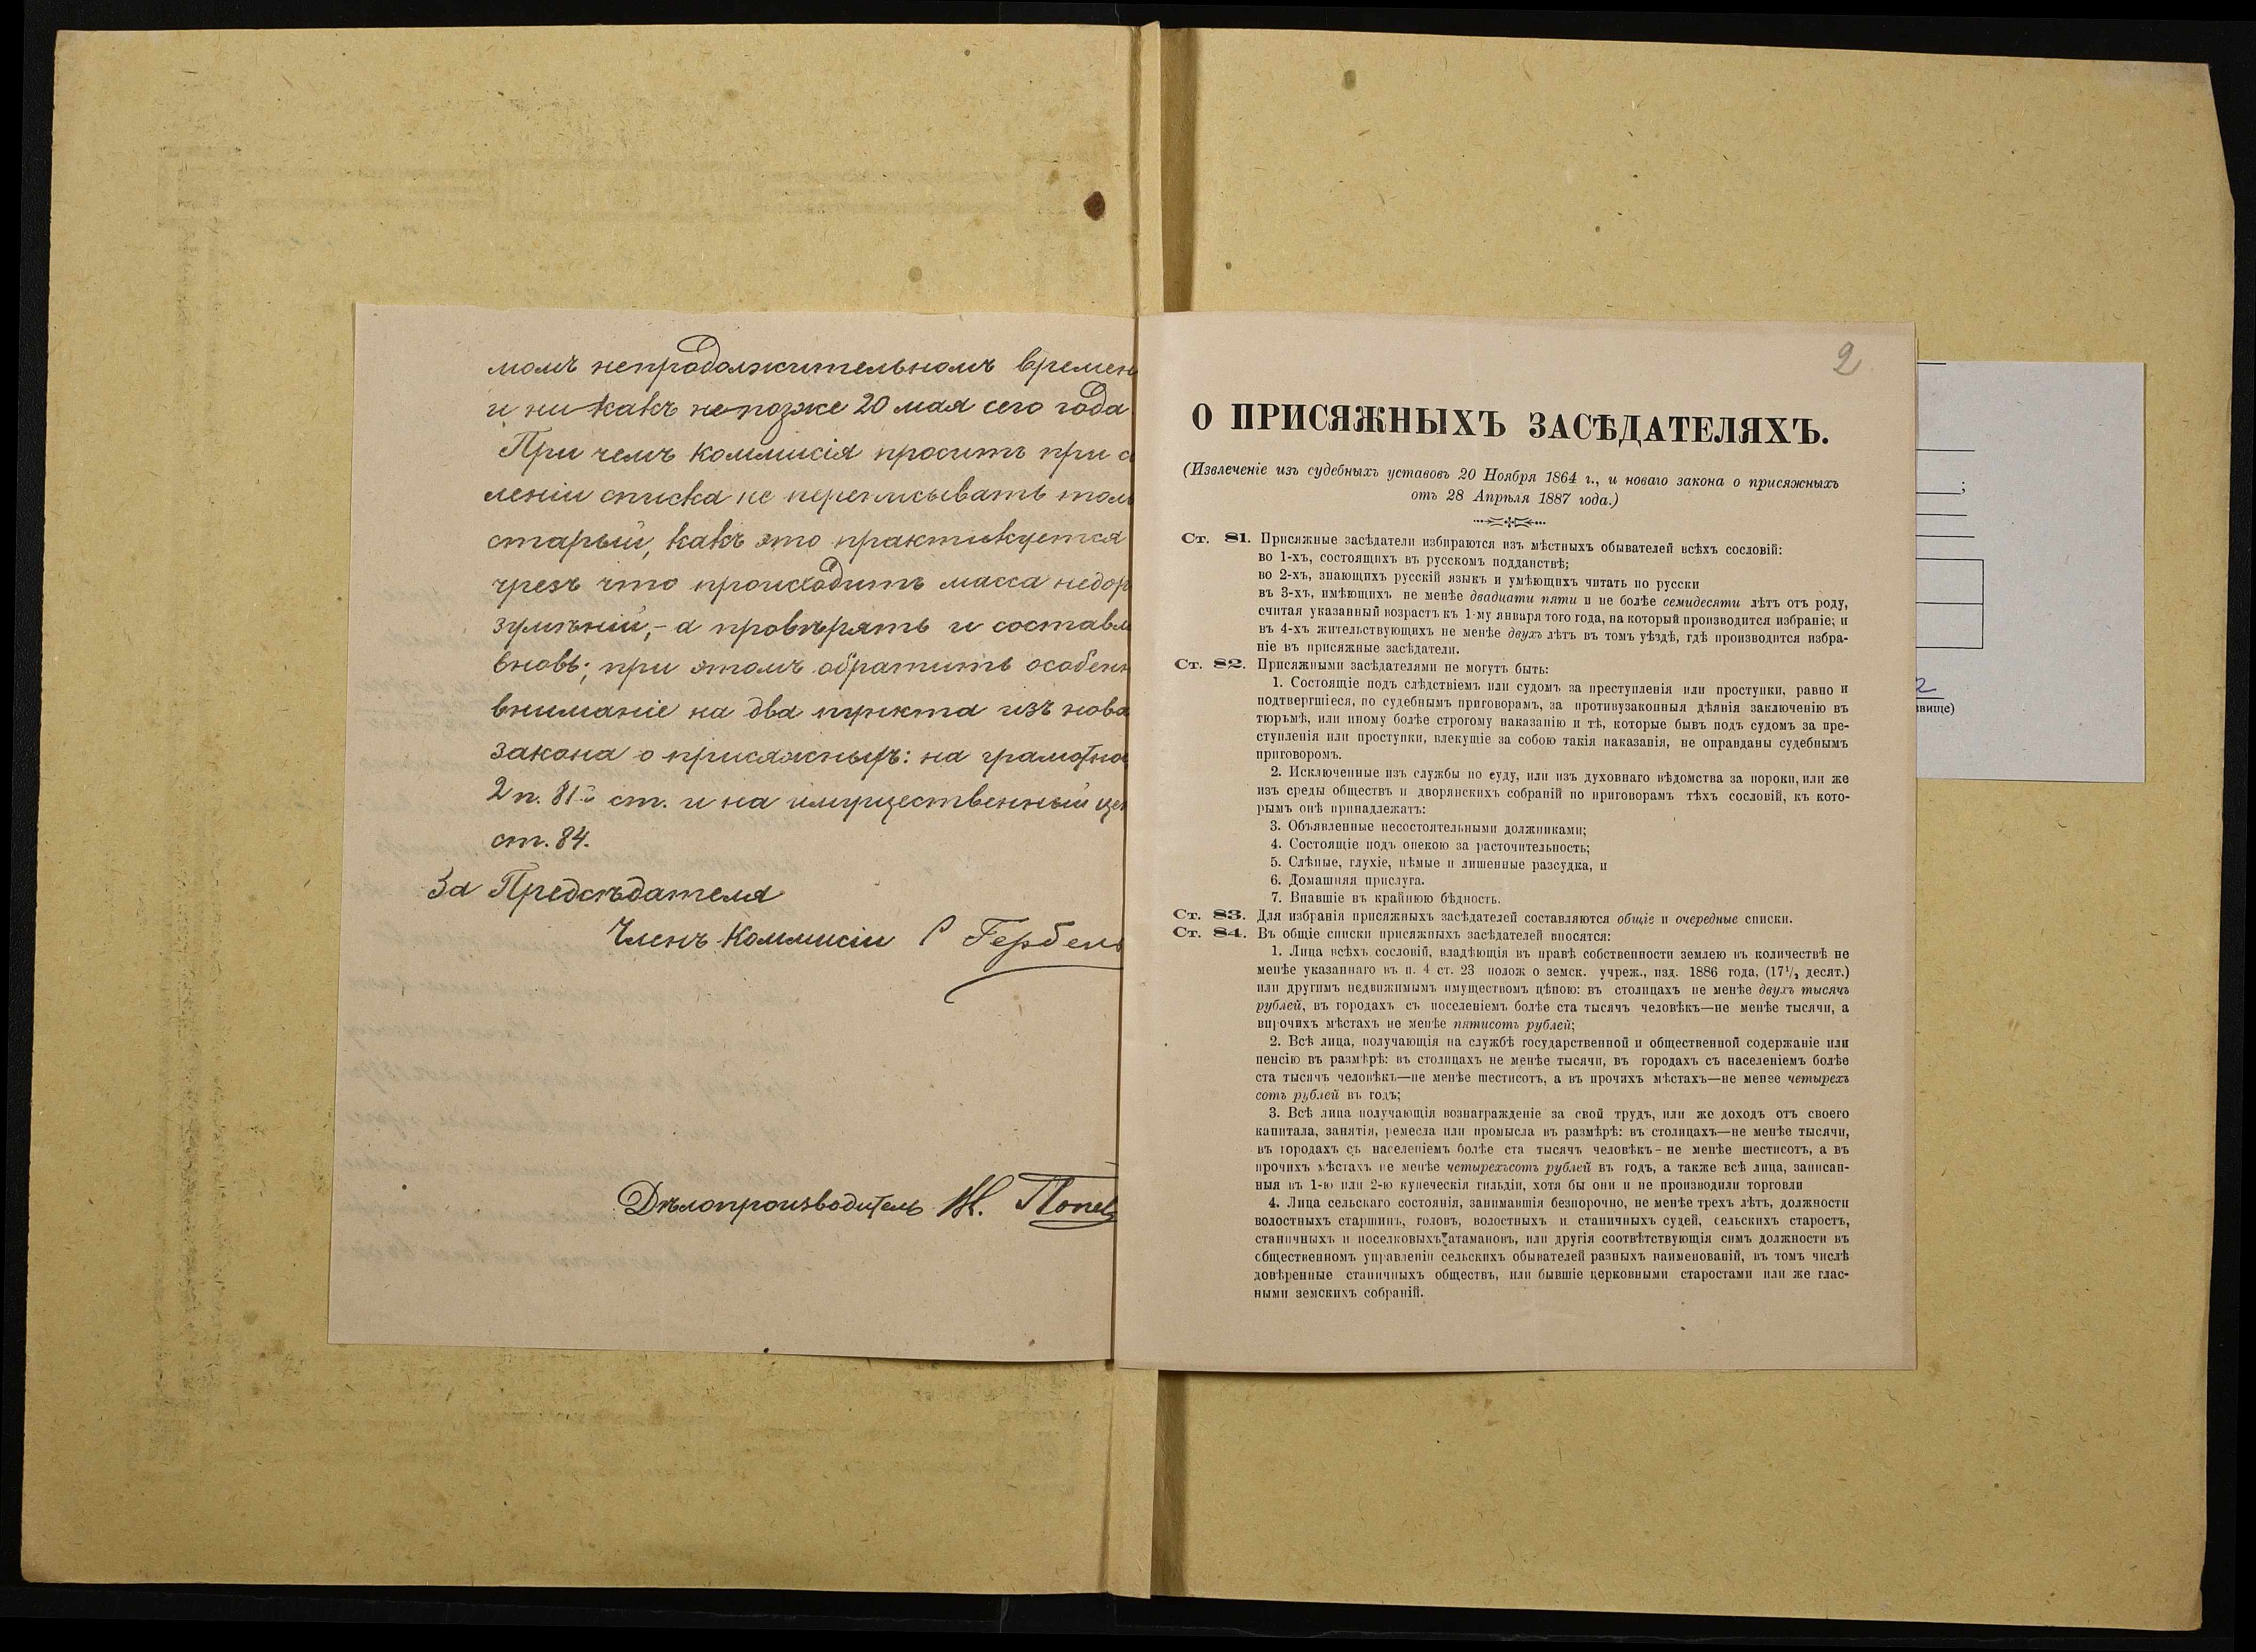 момъ непродолжительномъ времен
и ни какъ не позже 20 мая сего года
При чемъ коммисія проситъ при с
леніи списка не переписывать толь
старый, какъ это практикуется
чрезъ что происходитъ масса недор
зумѣній, - а провѣрять и составл
вновь; при этомъ обратить особенн
вниманіе на два пункта изъ нова
закона о присяжныхъ: на грамотно
2 п. 81й ст. и на имущественный цен
ст. 84.
За Предсѣдателя
Членъ Коммисіи С Гербель
Дѣлопроизводитель
2
О ПРИСЯЖНЫХЪ ЗАСѢДАТЕЛЯХЪ.
(Извлеченіе изъ судебныхъ уставовъ 20 Ноября 1864 г., и новаго закона о присяжныхъ
отъ 28 Апрѣля 1887 года.)
Ст. 81. Присяжные засѣдатели избираются изъ мѣстныхъ обывателей всѣхъ сословій:
во 1-хъ, состоящихъ въ русскомъ подданствѣ;
во 2-хъ, знающихъ русскій языкъ и умѣющихъ читать по русски
въ 3-хъ, имѣющихъ не менѣе двадцати пяти и не болѣе семидесяти лѣтъ отъ роду,
считая указанный возрастъ къ 1-му января того года, на который производится избраніе; и
въ 4-хъ жительствующихъ не менѣе двухъ лѣтъ въ томъ уѣздѣ, гдѣ производится избра-
ніе въ присяжные засѣдатели.
Ст. 82. Присяжными засѣдателями не могутъ быть:
1. Состоящіе подъ слѣдствіемъ или судомъ за преступленія или проступки, равно и
подвергшіеся, по судебнымъ приговорамъ, за противузаконныя дѣянія заключенію въ
тюрьмѣ, или иному болѣе строгому наказанію и тѣ, которые бывъ подъ судомъ за пре-
ступленія или проступки, влекущіе за собою такія наказанія, не оправданы судебнымъ
приговоромъ.
2. Исключенные изъ службы по суду, или изъ духовнаго вѣдомства за пороки, или же
изъ среды обществъ и дворянскихъ собраній по приговорамъ тѣхъ сословій, къ кото-
рымъ онѣ принадлежатъ:
3. Объявленные несостоятельными должниками;
4. Состоящіе подъ опекою за расточительность;
5. Слѣпые, глухіе, нѣмые и лишенные разсудка, и
6. Домашняя прислуга.
7. Впавшіе въ крайнюю бѣдность.
Ст. 83. Для избранія присяжныхъ засѣдателей составляются общіе и очередные списки.
Ст. 84. Въ общіе списки присяжныхъ засѣдателей вносятся:
1. Лица всѣхъ сословій, владѣющія въ правѣ собственности землею въ количествѣ не
менѣе указаннаго въ п. 4 ст. 23 полож о земск. учреж., изд. 1886 года, (17¹/₂ десят.)
или другимъ недвижимымъ имуществомъ цѣною: въ столицахъ не менѣе двухъ тысячъ
рублей, въ городахъ съ поселеніемъ болѣе ста тысячъ человѣкъ—не менѣе тысячи, а
впрочихъ мѣстахъ не менѣе пятисотъ рублей;
2. Всѣ лица, получающія на службѣ государственной и общественной содержаніе или
пенсію въ размѣрѣ: въ столицахъ не менѣе тысячи, въ городахъ съ населеніемъ болѣе
ста тысячъ человѣкъ—не менѣе шестисотъ, а въ прочихъ мѣстахъ—не менее четырехъ
сотъ рублей въ годъ;
3. Всѣ лица получающія вознагражденіе за свой трудъ, или же доходъ отъ своего
капитала, занятія, ремесла или промысла въ размѣрѣ: въ столицахъ—не менѣе тысячи,
въ городахъ съ населеніемъ болѣе ста тысячъ человѣкъ - не менѣе шестисотъ, а въ
прочихъ мѣстахъ не менѣе четырехъсотъ рублей въ годъ, а также всѣ лица, записан-
ныя въ 1-ю или 2-ю купеческія гильдіи, хотя бы они и не производили торговли
4. Лица сельскаго состоянія, занимавшія безпорочно, не менѣе трехъ лѣтъ, должности
волостныхъ старшинъ, головъ, волостныхъ и станичныхъ судей, сельскихъ старостъ,
станичныхъ и поселковыхъ атамановъ, или другія соотвѣтствующія симъ должности въ
общественномъ управленіи сельскихъ обывателей разныхъ наименованій, въ томъ числѣ
довѣренные станичныхъ обществъ, или бывшіе церковными старостами или же глас-
ными земскихъ собраній.
;
звище)